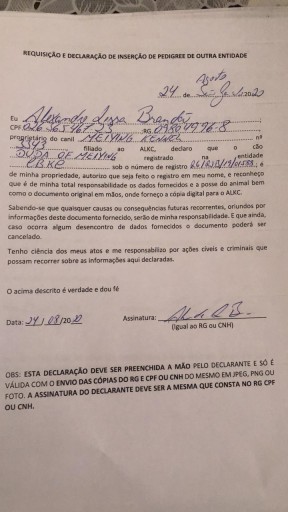 REQUISIÇÃO E DECLARAÇÃO DE INSERÇÃO DE PEDIGREE DE OUTRA ENTIDADE
24 de Agosto 2020
Eu Alexandre
CPF RG
proprietário do canil MEIYING KENNEL nº
3343 filiado ao ALKC, declaro que o cão
DUDA OF MEIYING registrado na entidade
CBKC sob o número de registro é
de minha propriedade, autorizo que seja feito o registro em meu nome, e reconheço
que é de minha total responsabilidade os dados fornecidos e a posse do animal bem
como o documento original em mãos, onde forneço a cópia digital para o ALKC.
Sabendo-se que quaisquer causas ou consequências futuras recorrentes, oriundos por
informações deste documento fornecido, serão de minha responsabilidade. E que ainda,
caso ocorra algum desencontro de dados fornecidos o documento poderá ser
cancelado.
Tenho ciência dos meus atos e me responsabilizo por ações cíveis e criminais que
possam recorrer sobre as informações aqui declaradas.
O acima descrito é verdade e dou fé
Data: 24/08/2020 Assinatura:
(Igual ao RG ou CNH)
OBS: ESTA DECLARAÇÃO DEVE SER PREENCHIDA A MÃO PELO DECLARANTE E SÓ É
VÁLIDA COM O ENVIO DAS CÓPIAS DO RG E CPF OU CNH DO MESMO EM JPEG, PNG OU
FOTO. A ASSINATURA DO DECLARANTE DEVE SER A MESMA QUE CONSTA NO RG CPF
OU CNH.